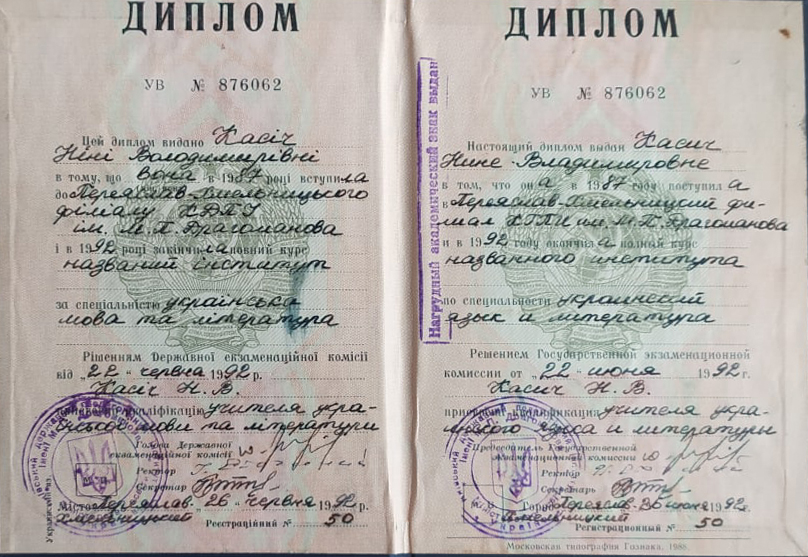 ДИПЛОМ
УВ № 876062
Цей диплом видано Касіч
Ніні Володимирівні
в тому, що вона в 1987 році вступила
до Переяслав-Хмельницького
філіалу КДПІ
ім. М.П. Драгоманова
і в 1992 році закінчила повний курс
названий інститут
за спеціальністю українська
мова та література
Рішенням Державної екзаменаційної комісії
від „22 “ червня 1992 р.
Касіч Н. В.
кваліфікацію учителя укра-
їнської мови та літератури
Голова Державної
екзаменаційної комісії
Ректор
Секретар
Місто Переяслав- „26 “ червня 1992 р.
Хмельницький
Реєстраційний № 50
ДИПЛОМ
УВ № 876062
Нагрудный академический знак выдан
Настоящий диплом выдан Касич
Нине Владимировне
в том, что она в 1987 году поступила
в Переяслав-Хмельницкий фи-
лиал КГПИ им. М.П. Драгоманова
и в 1992 году окончила полный курс
названного института
по специальности украинский
язык и литература
Решением Государственной экзаменационной
комиссии от „22 “ июня 1992 г.
Касич Н. В.
квалификация учителя укра-
инского языка и литературы
Председатель Государственной
экзаменационной комиссии
Ректор
Секретарь
Город Переяслав- июня 1992 г.
Хмельницкий
Регистрационный № 50
Московская типография Гознака. 1988.